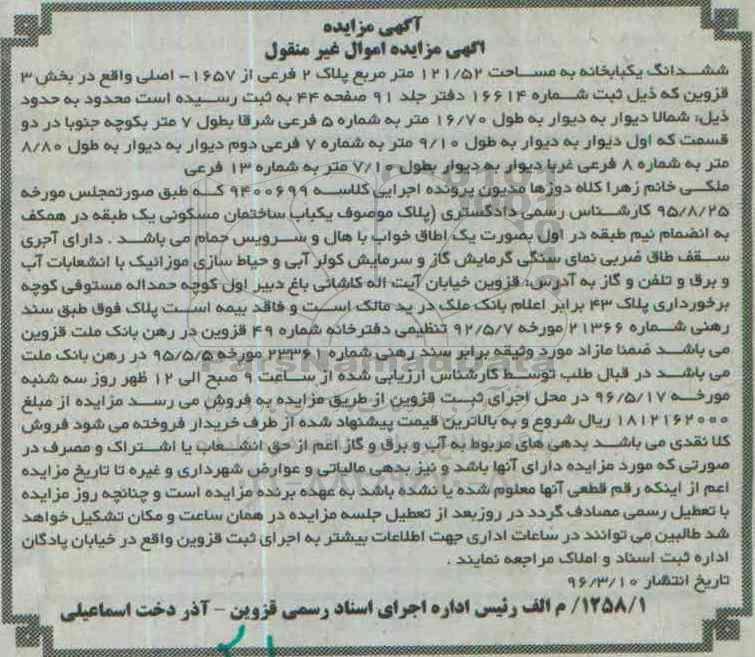 آگهی مزایده
اگهی مزایده اموال غیر منقول
ششدانگ یکبابخانه به مساحت ۱۲۱/۵۲ متر مربع پلاک ۲ فرعی از ۱۶۵۷- اصلی واقع در بخش ۳
قزوین که ذیل ثبت شماره ۱۶۶۱۴ دفتر جلد ۹۱ صفحه ۴۴ به ثبت رسیده است محدود به حدود
ذیل: شمالا دیوار به دیوار به طول ۱۶/۷۰ متر به شماره ۵ فرعی شرقا بطول ۷ متر بکوچه جنوبا در دو
قسمت که اول دیوار به دیوار به طول ۹/۱۰ متر به شماره ۷ فرعی دوم دیوار به دیوار به طول ۸/۸۰
متر به شماره ۸ فرعی غربا دیوار به دیوار بطول ۷/۱۰ متر به شماره ۱۳ فرعی
ملکی خانم زهرا کلاه دوزها مدیون پرونده اجرایی کلاسه ۹۴۰۰۶۹۹ که طبق صورتمجلس مورخه
۹۵/۸/۲۵ کارشناس رسمی دادگستری (پلاک موصوف یکباب ساختمان مسکونی یک طبقه در همکف
به انضمام نیم طبقه در اول بصورت یک اطاق خواب با هال و سرویس حمام می باشد . دارای آجری
سقف طاق ضربی نمای سنگی گرمایش گاز و سرمایش کولر آبی و حیاط سازی موزائیک با انشعابات آب
و برق و تلفن و گاز به آدرس: قزوین خیابان آیت اله کاشانی باغ دبیر اول کوچه حمداله مستوفی کوچه
برخورداری پلاک ۴۳ برابر اعلام بانک ملک در ید مالک است و فاقد بیمه است پلاک فوق طبق سند
رهنی شماره ۲۱۳۶۶ مورخه ۹۲/۵/۷ تنظیمی دفترخانه شماره ۴۹ قزوین در رهن بانک ملت قزوین
می باشد ضمنا مازاد مورد وثیقه برابر سند رهنی شماره ۲۳۳۶۱ مورخه ۹۵/۵/۵ در رهن بانک ملت
می باشد در قبال طلب توسط کارشناس ارزیابی شده از ساعت ۹ صبح الی ۱۲ ظهر روز سه شنبه
مورخه ۹۶/۵/۱۷ در محل اجرای ثبت قزوین از طریق مزایده به فروش می رسد مزایده از مبلغ
۱۸۱۲۱۶۲۰۰۰ ریال شروع و به بالاترین قیمت پیشنهاد شده از طرف خریدار فروخته می شود فروش
کلا نقدی می باشد بدهی های مربوط به آب و برق و گاز اعم از حق انشعاب یا اشتراک و مصرف در
صورتی که مورد مزایده دارای آنها باشد و نیز بدهی مالیاتی و عوارض شهرداری و غیره تا تاریخ مزایده
اعم از اینکه رقم قطعی آنها معلوم شده یا نشده باشد به عهده برنده مزایده است و چنانچه روز مزایده
با تعطیل رسمی مصادف گردد در روز بعد از تعطیل جلسه مزایده در همان ساعت و مکان تشکیل خواهد
شد طالبین می توانند در ساعات اداری جهت اطلاعات بیشتر به اجرای ثبت قزوین واقع در خیابان پادگان
اداره ثبت اسناد و املاک مراجعه نمایند .
تاریخ انتشار ۹۶/۳/۱۰
۱۲۵۸/۱/ م الف رئیس اداره اجرای اسناد رسمی قزوین - آذر دخت اسماعیلی